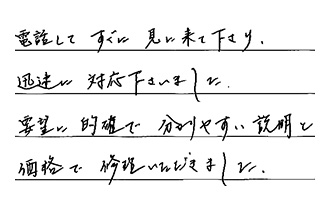 電話して すぐに 見に来て下さり、
迅速に 対応下さいました。
要望に 的確で 分かりやすい 説明と
価格で 修理いただきました。